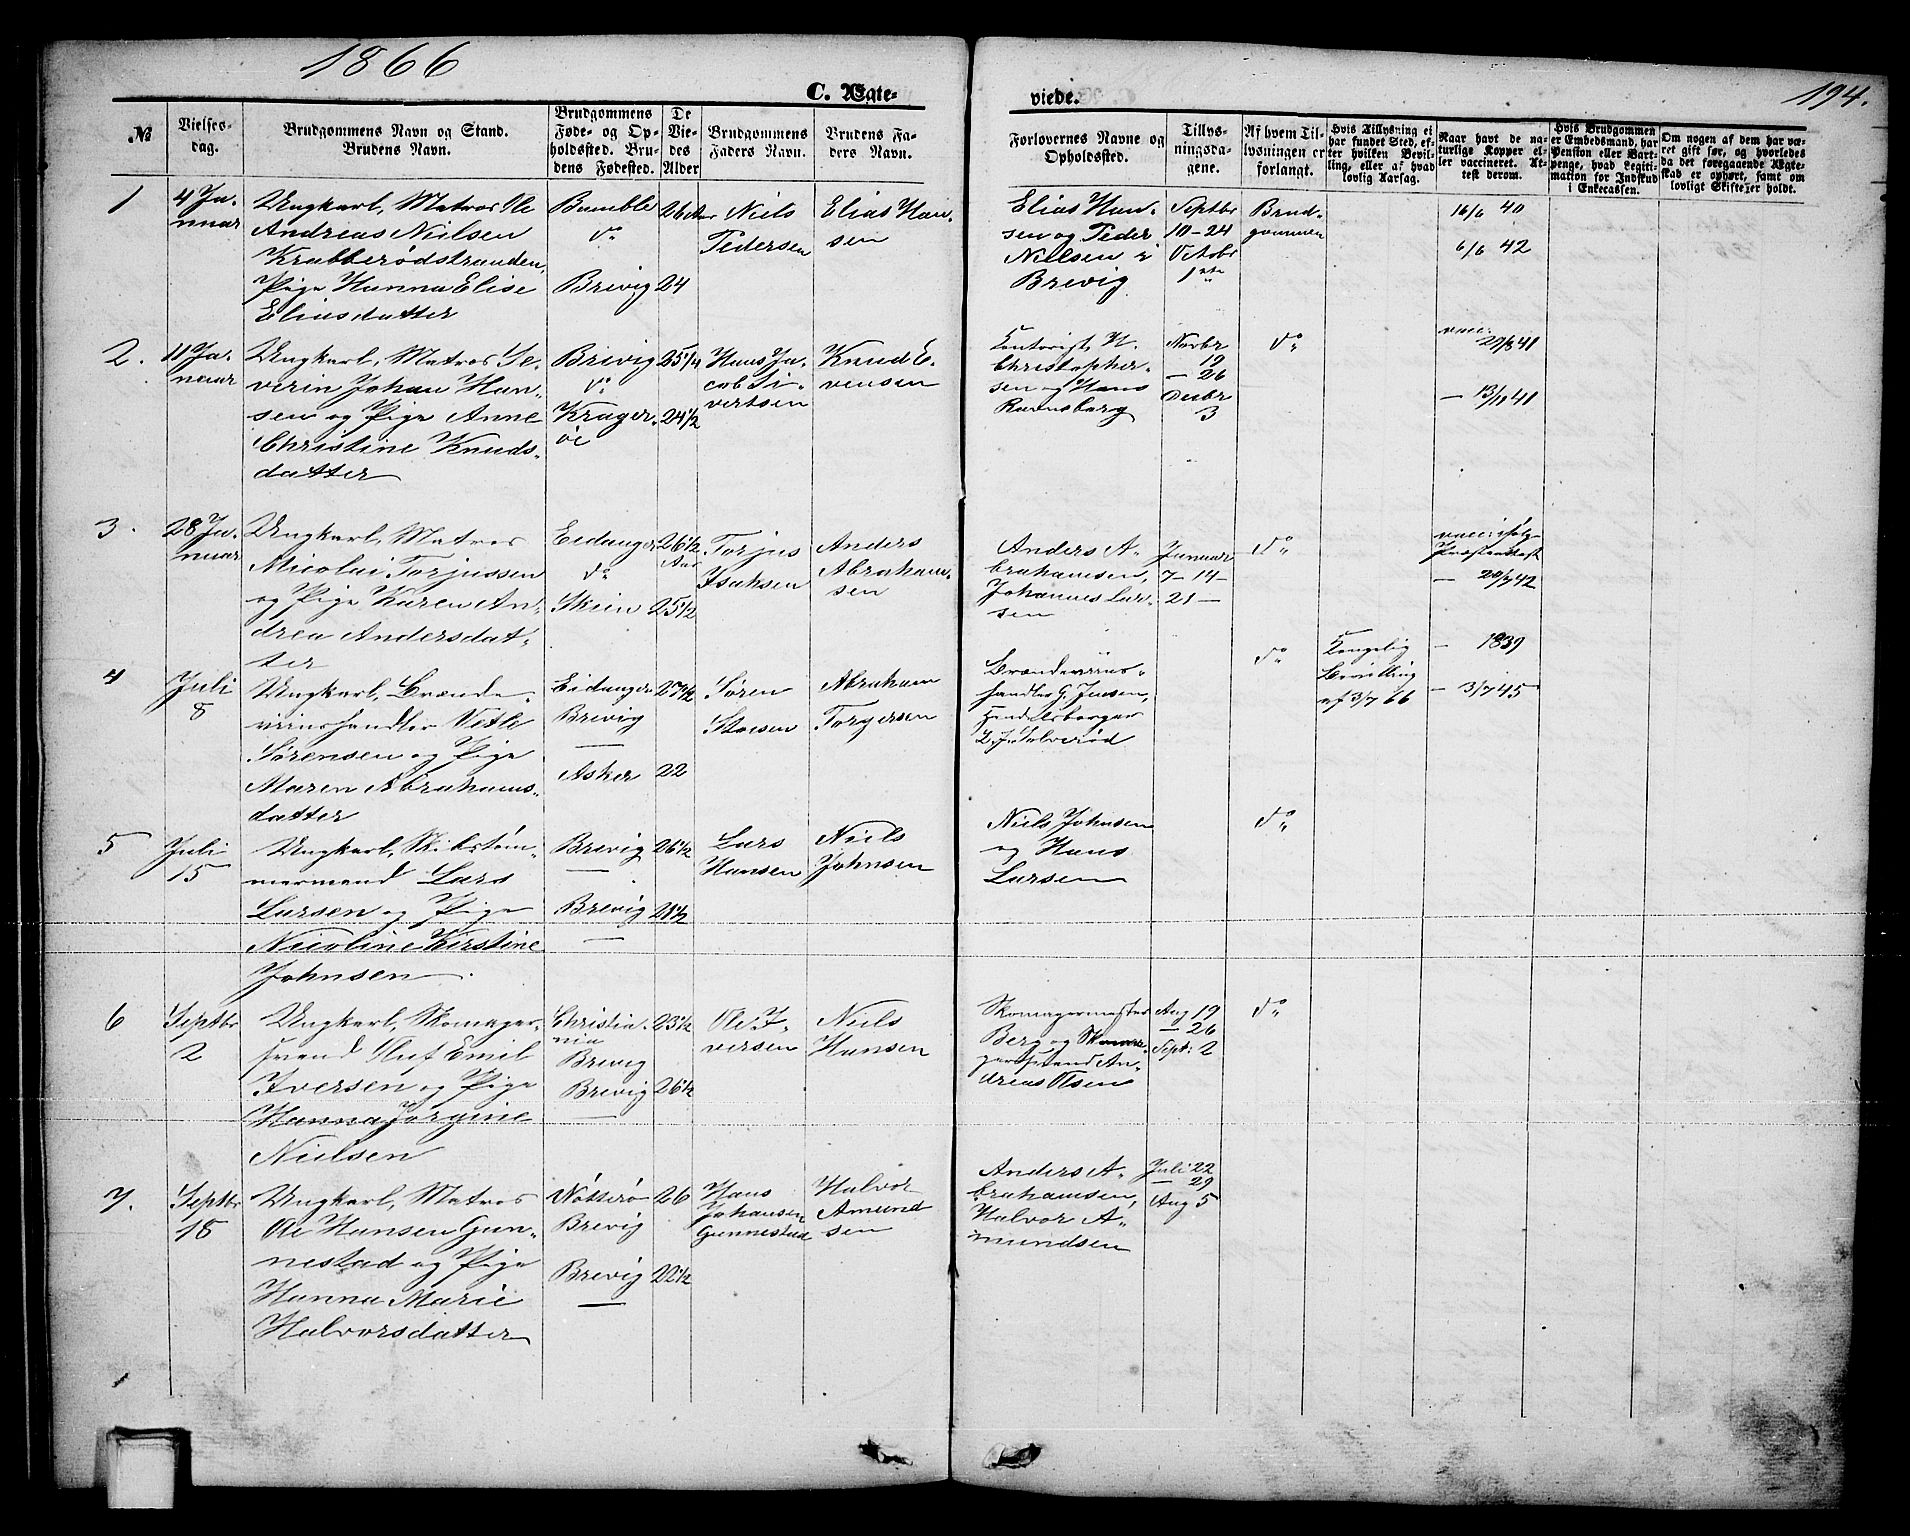 1866
194.
C. Ægte-
viede.
№
Vielses-
dag.
Brudgommens Navn og Stand.
Brudens Navn.
Brudgommens
Føde- og Op-
holdssted. Bru-
dens Fødested.
De
Vie-
des
Alder
Brudgommens
Faders Navn.
Brudens Fa-
ders Navn.
Forlovernes Navne og
Opholdssted.
Tillys-
ningsda-
gene.
Af hvem Til-
lysningen er
forlangt.
Hvis Tillysning ei
har fundet Sted, ef-
ter hvilken Bevil-
ling, eller af hvad
lovlig Aarsag.
Naar havt de na-
turlige Kopper el-
ler vaccineret. At-
test derom.
Hvis Brudgommen
er Embedsmand, har
Pension eller Vart-
penge, hvad Legiti-
mation for Indskud
i Enkecassen.
Om nogen af dem har væ-
ret gift før, og hvorledes
da det foregaaende Ægte-
skab er ophørt, samt om
lovligt Skifte er holdt.
1
4 Ja-
nuar
Ungkarl, Matros Ole
Andreas Nielsen
Krabberødstranden,
Pige Hanna Elise
Eliasdatter
Bamble
do
Brevig
26 Aar
24
Niels
Pedersen
Elias Han-
sen
Elias Han-
sen og Peder
Nielsen i
Brevig
Septbr
10-24
Octobr
1ste
Brud-
gommen
16/6 40
6/6 42
2.
11 Ja-
nuar
Ungkarl, Matros Se-
verin Johan Han-
sen og Pige Anne
Christine Knuds-
datter
Brevig
do
Krager-
øe
25 1/4
24 1/2
Hans Ja-
cob Si-
vertsen
Knud E-
vensen
Kontorist N.
Christopher-
sen og Hans
Ravnsberg
Novbr
19
- 26
Decbr
3
do
vacc:
29/8 41
- 13/10 41
3.
28 Ja-
nuar
Ungkarl, Matros
Nicolai Torjussen
og Pige Karen An-
drea Andersdat-
ter
Eidanger
do
Skien
26 1/2
Aar
25 1/2
Torjus
Isaksen
Anders
Abraham-
sen
Anders A-
brahamsen,
Johannes Lar-
sen
Januar
7-14-
21-
do
vacc: ifølge
Præsteattest
- 20/7 42
4
Juli
8
Ungkarl, Brænde-
viinshandler Vetle
Sørensen og Pige
Maren Abrahams-
datter
Eidanger
Brevig
Asker
27 1/2
22
Søren
Stoesen
Abraham
Torgersen
Brændeviins-
handler G. Jensen,
Handelsborger
do
Kongelig
Bevilling
af 3/7 66
- 1839
- 3/7 45
5
Juli
15
Ungkarl, Skibstøm-
mermand Lars
Larsen og Pige
Nicoline Kirstine
Johnsen
Brevig
Brevig
26 1/2
21 1/2
Lars
Hansen
Niels
Johnsen
Niels Johnsen
og Hans
Larsen
do
6
Septbr
2
Ungkarl, Skomager-
svend Oluf Emil
Iversen og Pige
Hanna Jørgine
Nielsen
Christia-
nia
Brevig
Brevig
23 1/2
26 1/2
Ole I-
versen
Niels
Hansen
Skomagermester
Berg og Skoma-
gersvend An-
dreas Olsen
Aug 19
- 26
Sept: 2
do
7.
Septbr
18
Ungkarl, Matros
Ole Hansen Gun-
nestad og Pige
Hanna Marie
Halvorsdatter
Nøtterø
Brevig
Brevig
26
22 1/2
Hans
Johansen
Gunnestad
Halvor
Amund
sen
Anders A-
brahamsen,
Halvor A-
mundsen
Juli 22
- 29
Aug 5